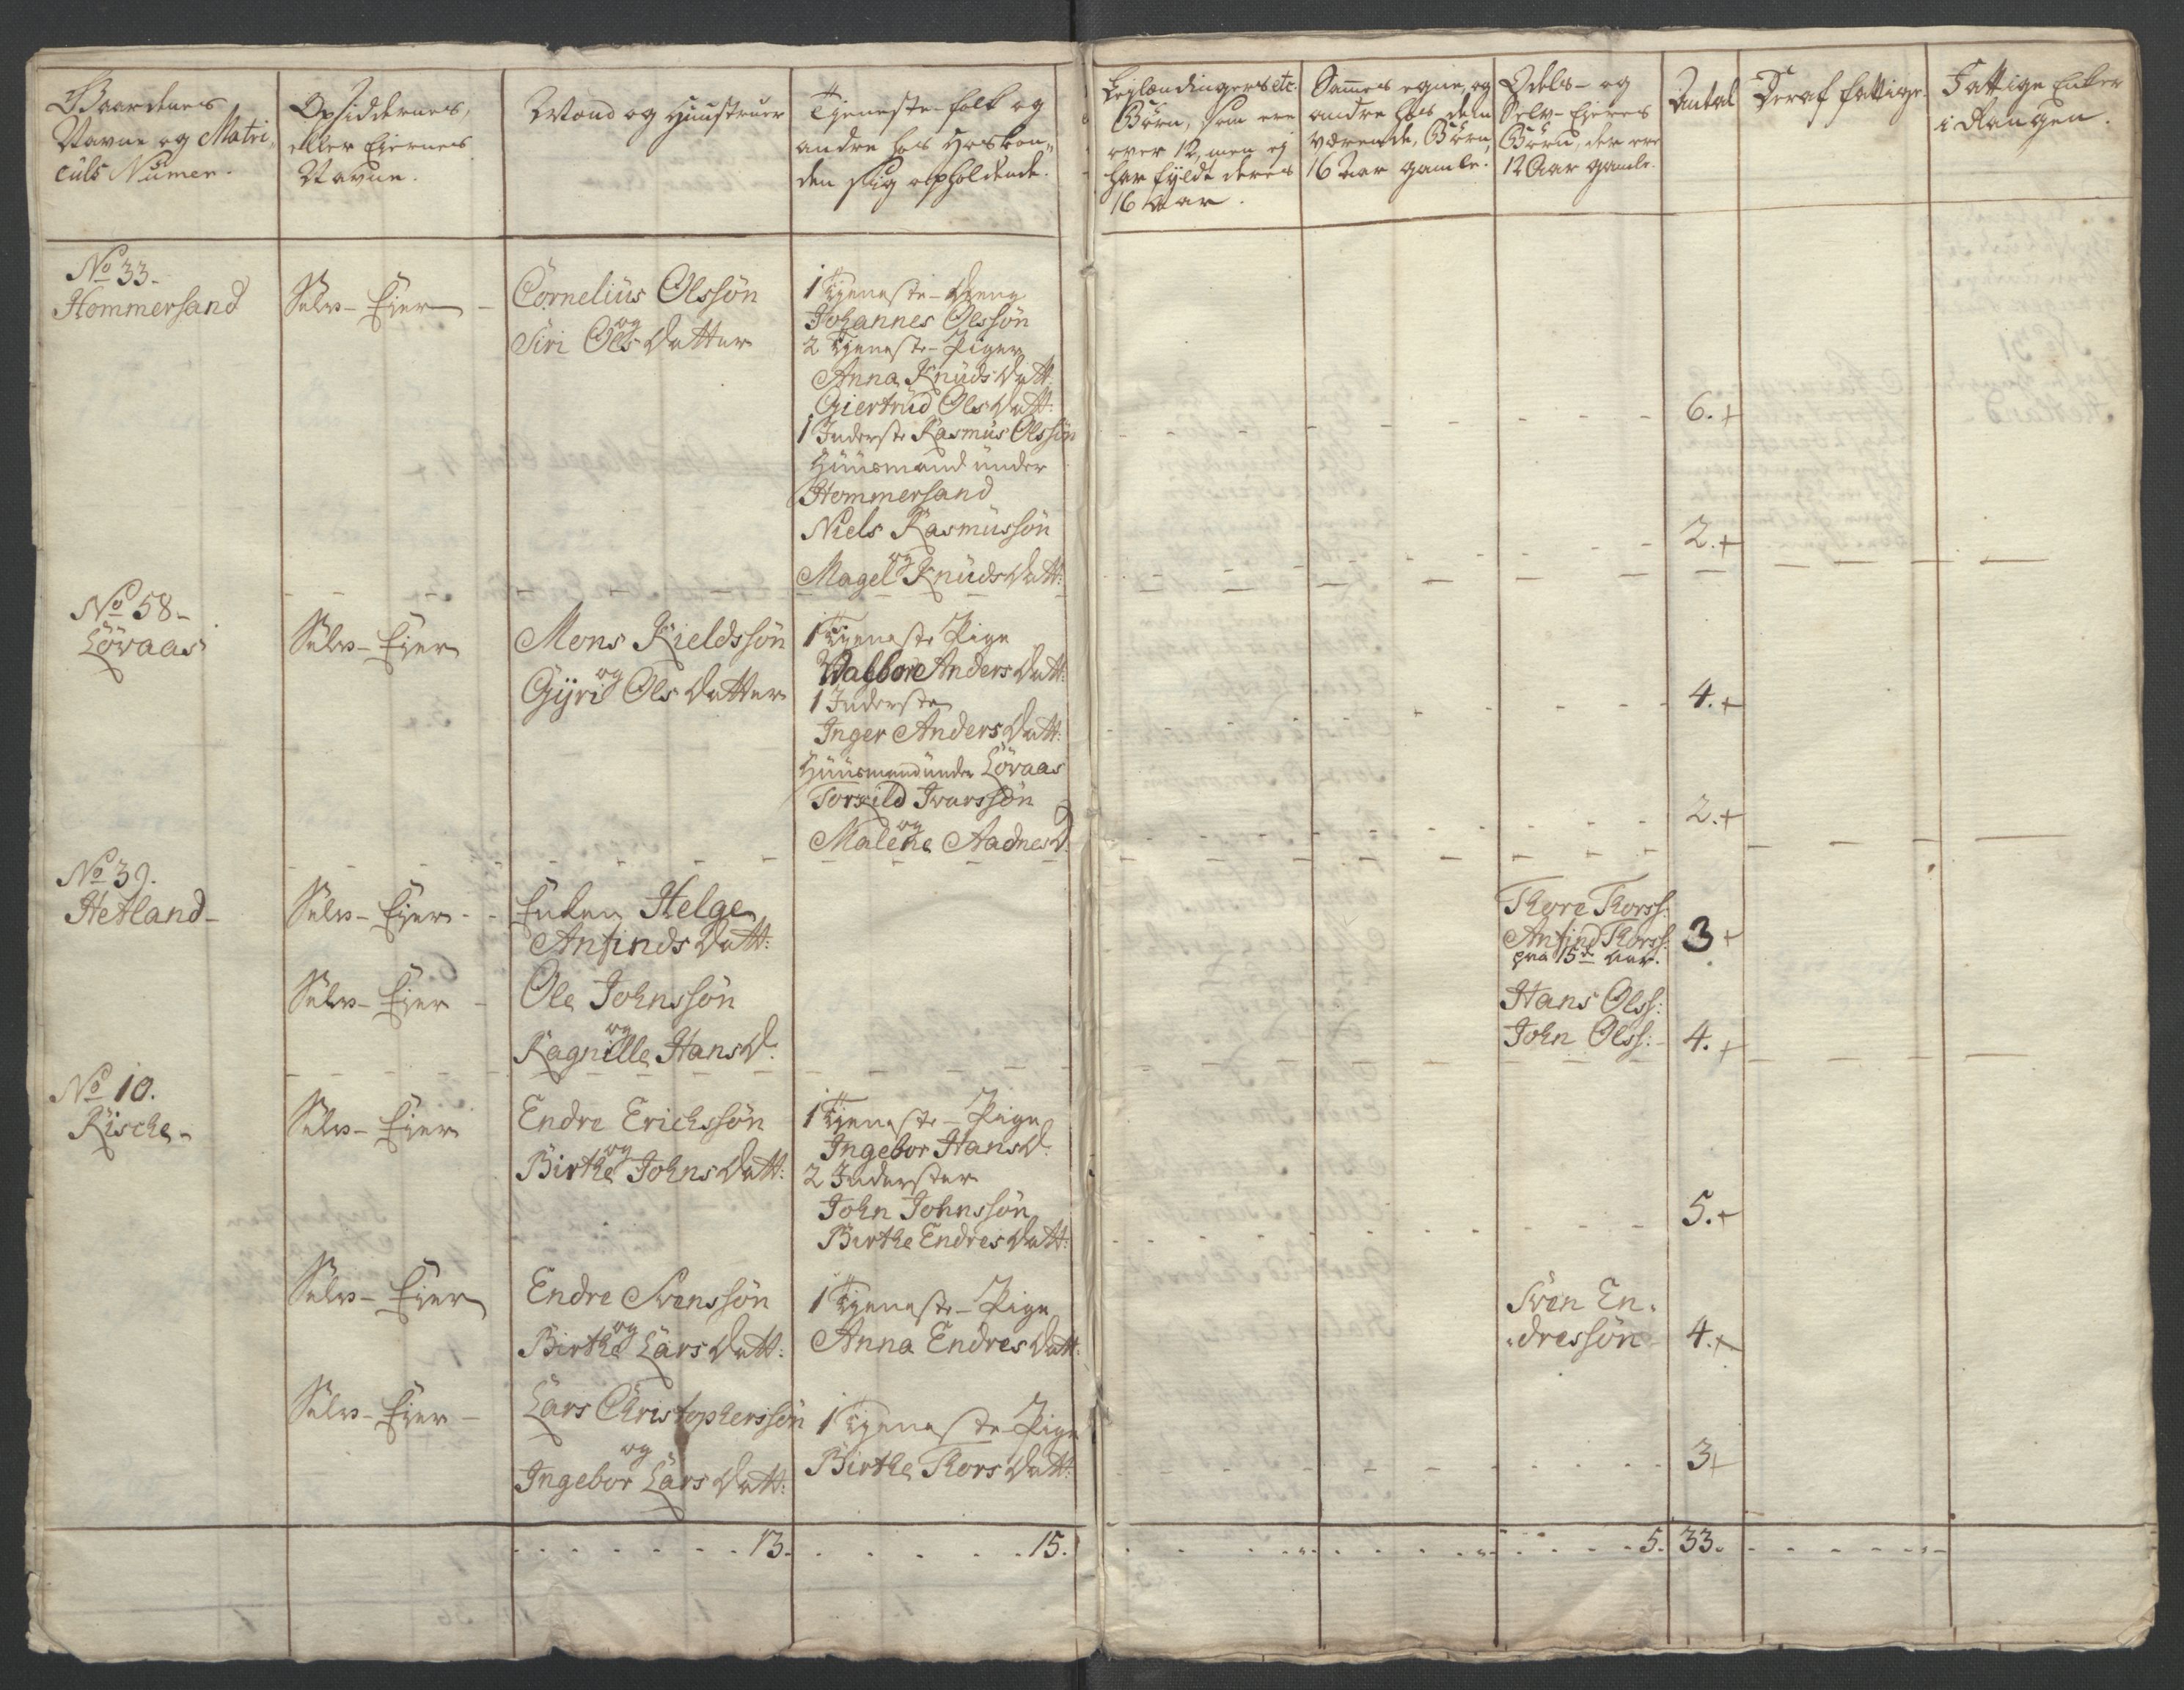 Gaardenes
Navne og Matri-
culs Numer.
Opsiddernes,
eller Eiernes
Navne.
Mænd og Hustruer
Tjeneste-folk og
andre hos Hosbon-
den sig opholdende.
Leilændingers etc.
Børn, som ere
over 12, men ej
har fyldt deres
16 Aar.
Sammes egne, og
andre hos dem
værende, Børn,
16 Aar gamle.
Odels- og
Selv-Eieres
Børn, der ere
12 Aar gamle.
Antal
Deraf fattige.
Fattige Enker
i Rangen.
No 33.
Hommersand
Selv-Eier
Cornelius Olssøn
og
Siri Ols Datter
1 Tjeneste-Dreng
Johannes Olssøn
2 Tjeneste-Piger
Anna Knuds Datt:
Giertrud Ols Datt:
1 Inderste Rasmus Olssøn
6.+
Huusmand under
Hommersand
Niels Rasmussøn
og
Magel Knuds Datt:
2.+
No 58-
Løvaas
Selv-Eier
Mons Kieldssøn
og
Gyri Ols Datter
1 Tjeneste Pige
Valbore Anders Datt:
1 Inderste
Inger Anders Datt:
4.+
Huusmand under Løvaas
Torkild Ivarssøn
og
Malene Aadnes D.
2.+
No 39.
Hetland-
Selv-Eier
Enken Helge
Anfinds Datt:
Thore Thorss:
Anfind Thorss:
paa 15de Aar.
3+
Selv-Eier
Ole Johnssøn
og
Ragnille Hans D.
Hans Olss:
John Olss:
4.+
No 10.
Rische-
Selv-Eier
Endre Erichssøn
og
Birthe Johns Datt:
1 Tjeneste-Pige
Ingebor Hans D.
2 Inderster
John Johnssøn
Birthe Endres Datt:
5.+
Selv-Eier
Endre Svenssøn
og
Birthe Lars Datt:
1 Tjeneste-Pige
Anna Endres Datt:
Sven En-
dressøn
4.+
Selv-Eier
Lars Christopherssøn
og
Ingebor Lars Datt:
1 Tjeneste-Pige
Birthe Thors Datt:
3+
13.
15.
5.
33.